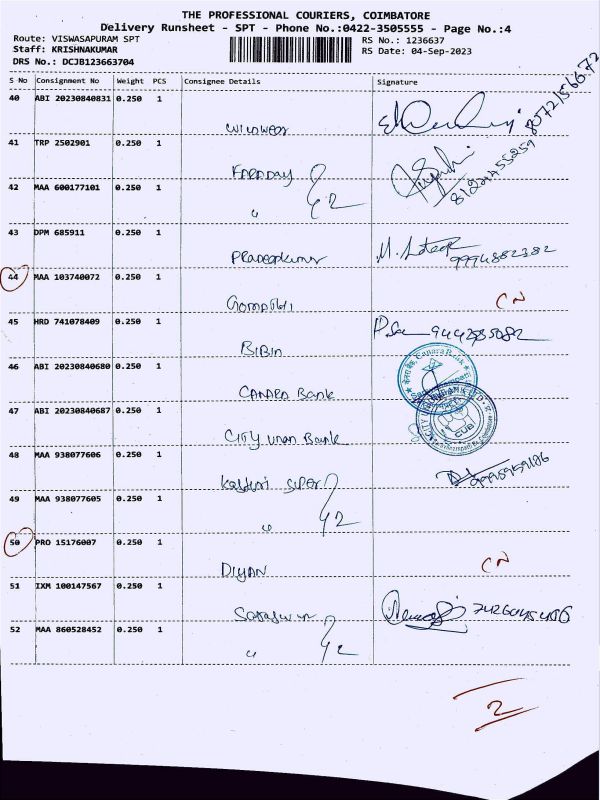 THE PROFESSIONAL COURIERS, COIMBATORE
Delivery Runsheet - SPT - Phone No.:0422-3505555 - Page No.:4
Route: VISWASAPURAM SPT RS No.: 1236637
Staff: KRISHNAKUMAR RS Date: 04-Sep-2023
DRS No.: DCJB123663704
S No Consignment No Weight PCS Consignee Details Signature
40 ABI 20230840831 0.250 1
41 TRP 2502901 0.250 1
FARADAY
42 MAA 600177101 0.250 1
"
43 DPM 685911 0.250 1
Pradeepkumar
9994882382
44 MAA 103740072 0.250 1
CN
45 HRD 741078409 0.250 1
BIBIN
46 ABI 20230840680 0.250 1
CANARA Bank
Canara Bank
47 ABI 20230840687 0.250 1
City union Bank
CUB
48 MAA 938077606 0.250 1
49 MAA 938077605 0.250 1
"
50 PRO 15176007 0.250 1
DIYAN
CN
51 IXM 100147567 0.250 1
52 MAA 860528452 0.250 1
"
2